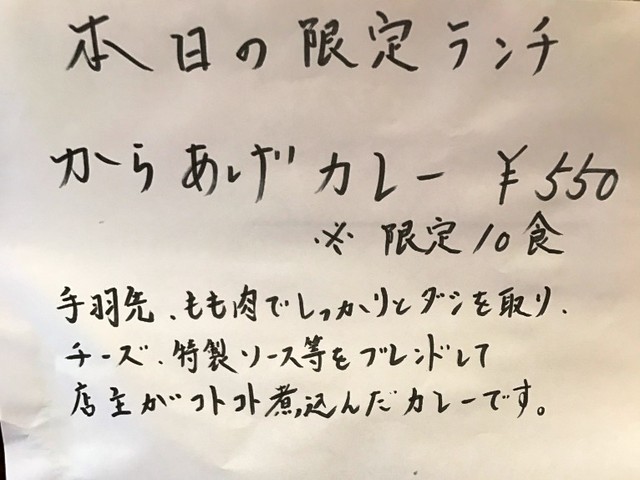 本日の限定ランチ
からあげカレー ¥550
※ 限定10食
手羽先、もも肉でしっかりとダシを取り、
チーズ、特製ソース等をブレンドして
店主がコトコト煮込んだカレーです。